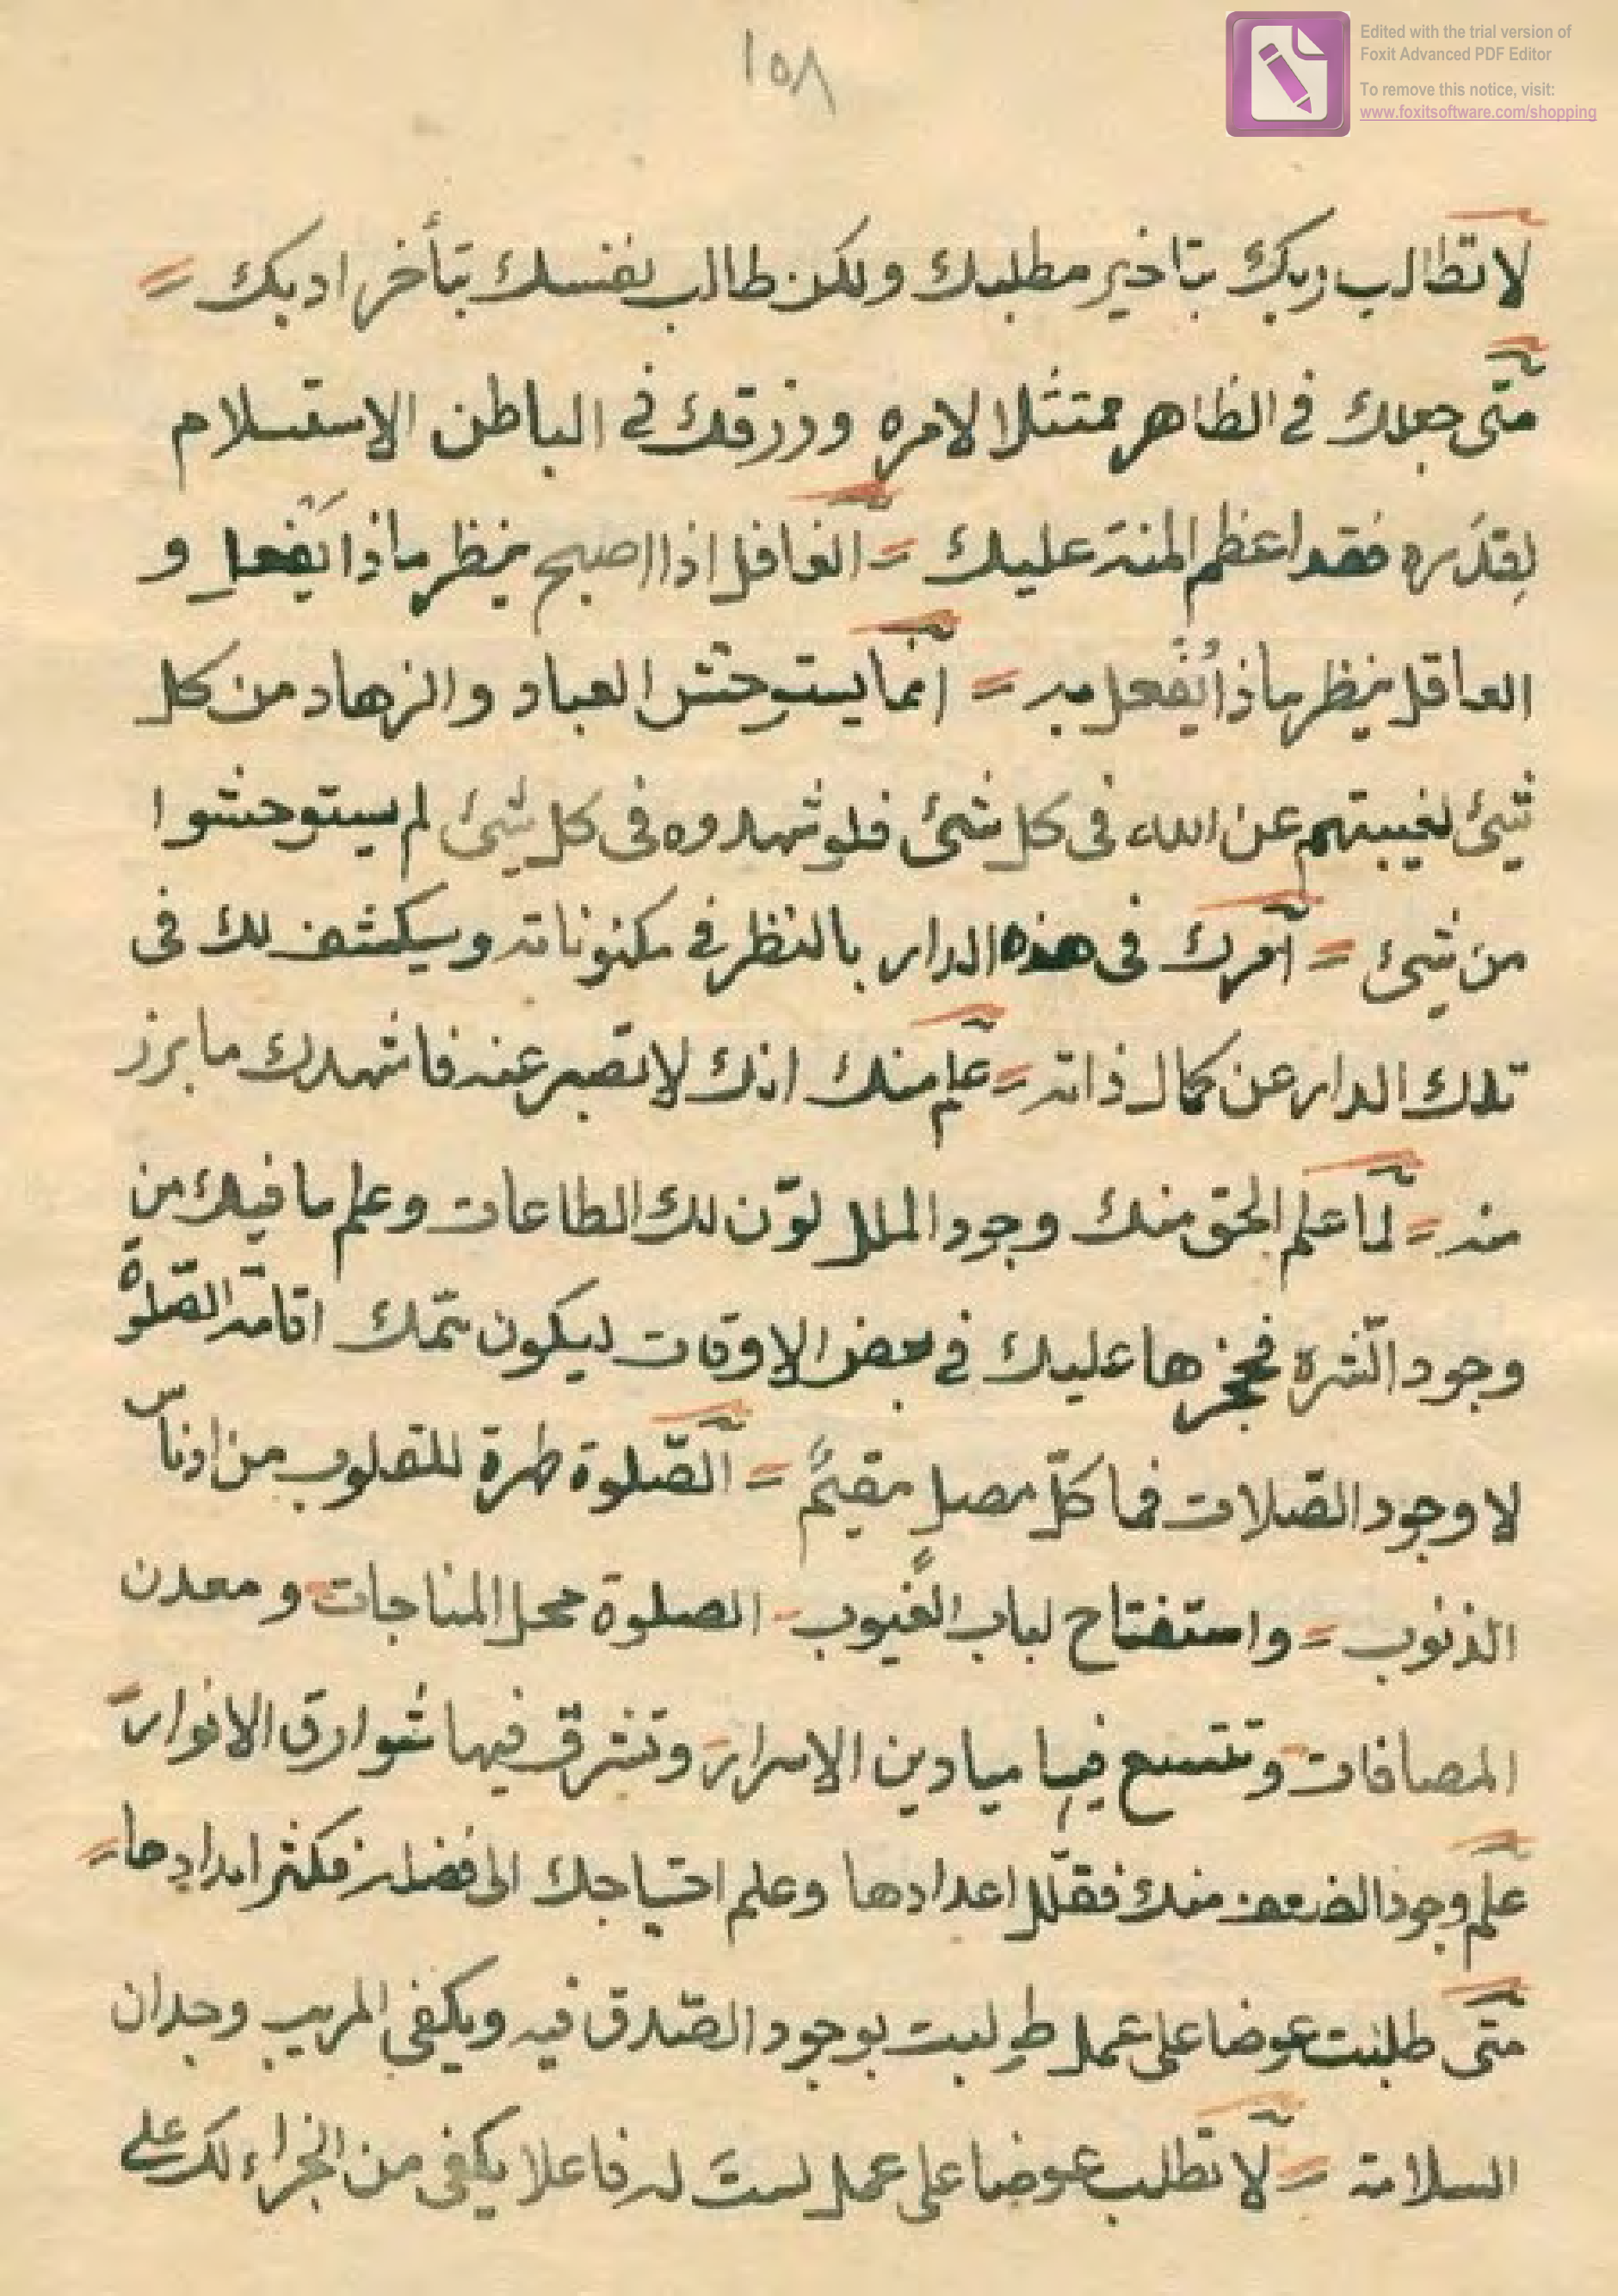 ١٥٨
Edited with the trial version of
Foxit Advanced PDF Editor
To remove this notice, visit:
www.foxitsoftware.com/shopping
لا تطالب ربك بتاخير مطلبك ولكن طالب نفسك بتأخر ادبك =
متى جعلك في الظاهر ممتثلا لامره ورزقك في الباطن الاستسلام
لِقدَره فقد اعظم المنة عليك = الغافل اذا اصبح ينظر ماذا يَفعل و
العاقل ينظر ماذا يُفعل به = انما يستوحش العباد والزهاد من كل
شيئ لغيبتهم عن الله فى كل شيئ فلو شهدوه فى كل شيئ لم يستوحشوا
من شيئ = آمرك فى هذه الدار بالنظر في مكنوناته وسيكشف لك فى
تلك الدار عن كمال ذاته = علم منك انك لا تصبر عنه فاشهدك ما برز
منه = لمّا علم الحق منك وجود الملل لوّن لك الطاعات وعلم ما فيك من
وجود الشره فحجزها عليك في بعض الاوقات ليكون همّك اقامة الصّلوة
لا وجود الصّلات فما كلّ مصلٍ مقيمٌ = الصّلوة طهرة للقلوب من ادناس
الذنوب = واستفتاح لباب الغيوب - الصلوة محل المناجات = ومعدن
المصافات - وتتسع فيها ميادين الاسرار - وتشرق فيها شوارق الانوار =
علم وجود الضعف منك فقلّل اعدادها وعلم احتياجك الى فضله فكثر امدادها =
متى طلبت عوضا على عمل طولبت بوجود الصّدق فيه ويكفى المريب وجدان
السلامة = لا تطلب عوضا على عمل لستَ له فاعلا يكفى من الجزاء لك على